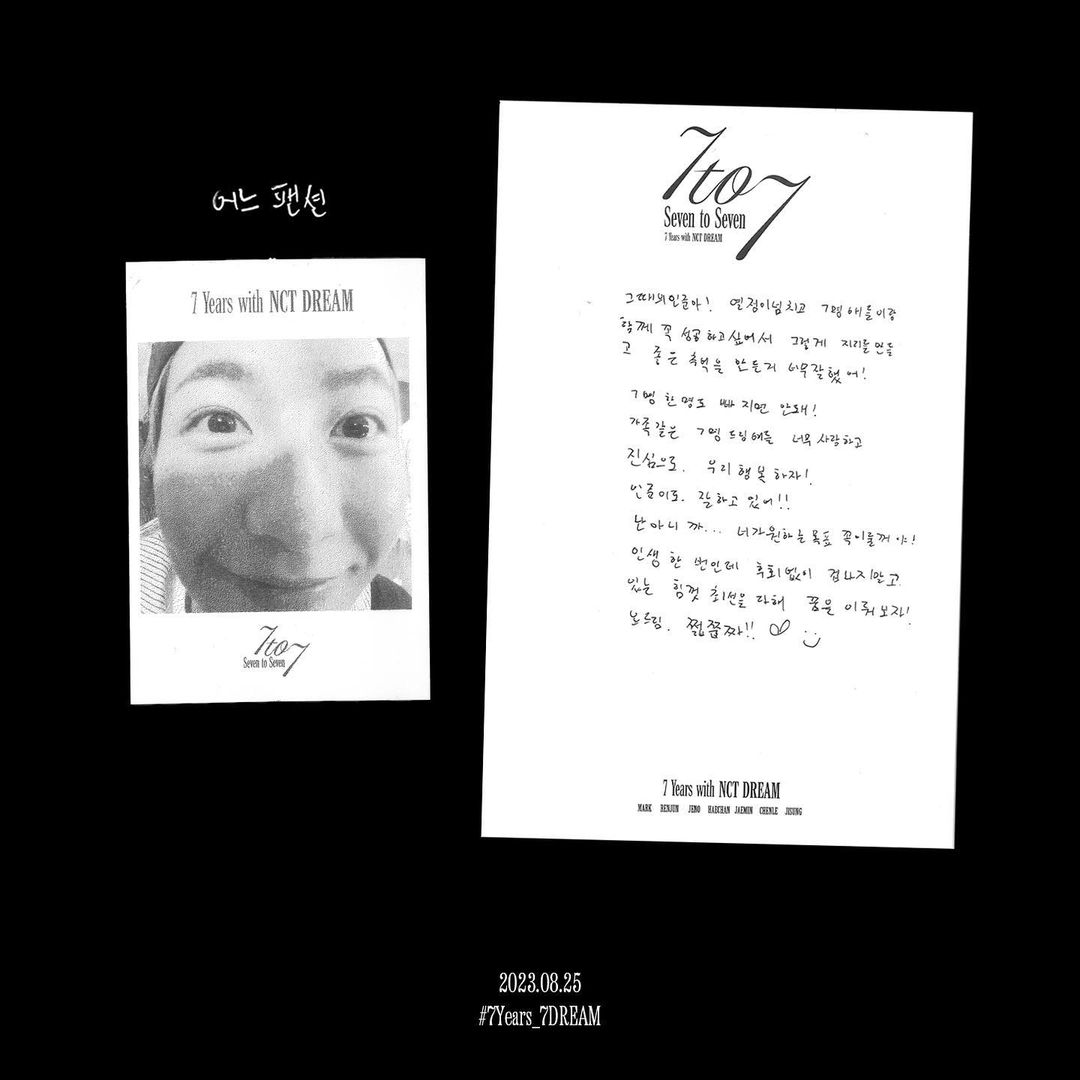 어느 팬션
7 Years with NCT DREAM
7to7
Seven to Seven
7to7
Seven to Seven
7 Years with NCT DREAM
그때의인준아! 열정이넘치고 7명애들이랑
함께 꼭 성공하고싶어서 그렇게 자리를만들
고 좋은 추억을 만든거 너무잘했어!
7명 한명도 빠지면 안돼!
가족같은 7명드림애들 너무 사랑하고
진심으로. 우리행복하자!
인준이도. 잘하고 있어!!
난아니까... 너가원하는목표 꼭이룰꺼야!
인생 한 번인데 후회없이 겁나지말고
있는 힘껏 최선을 다해 꿈을 이뤄보자!
보드림. 쩝쭙짜!!
7 Years with NCT DREAM
MARK RENJUN JENO HAECHAN JAEMIN CHENLE JISUNG
2023.08.25
#7Years_7DREAM